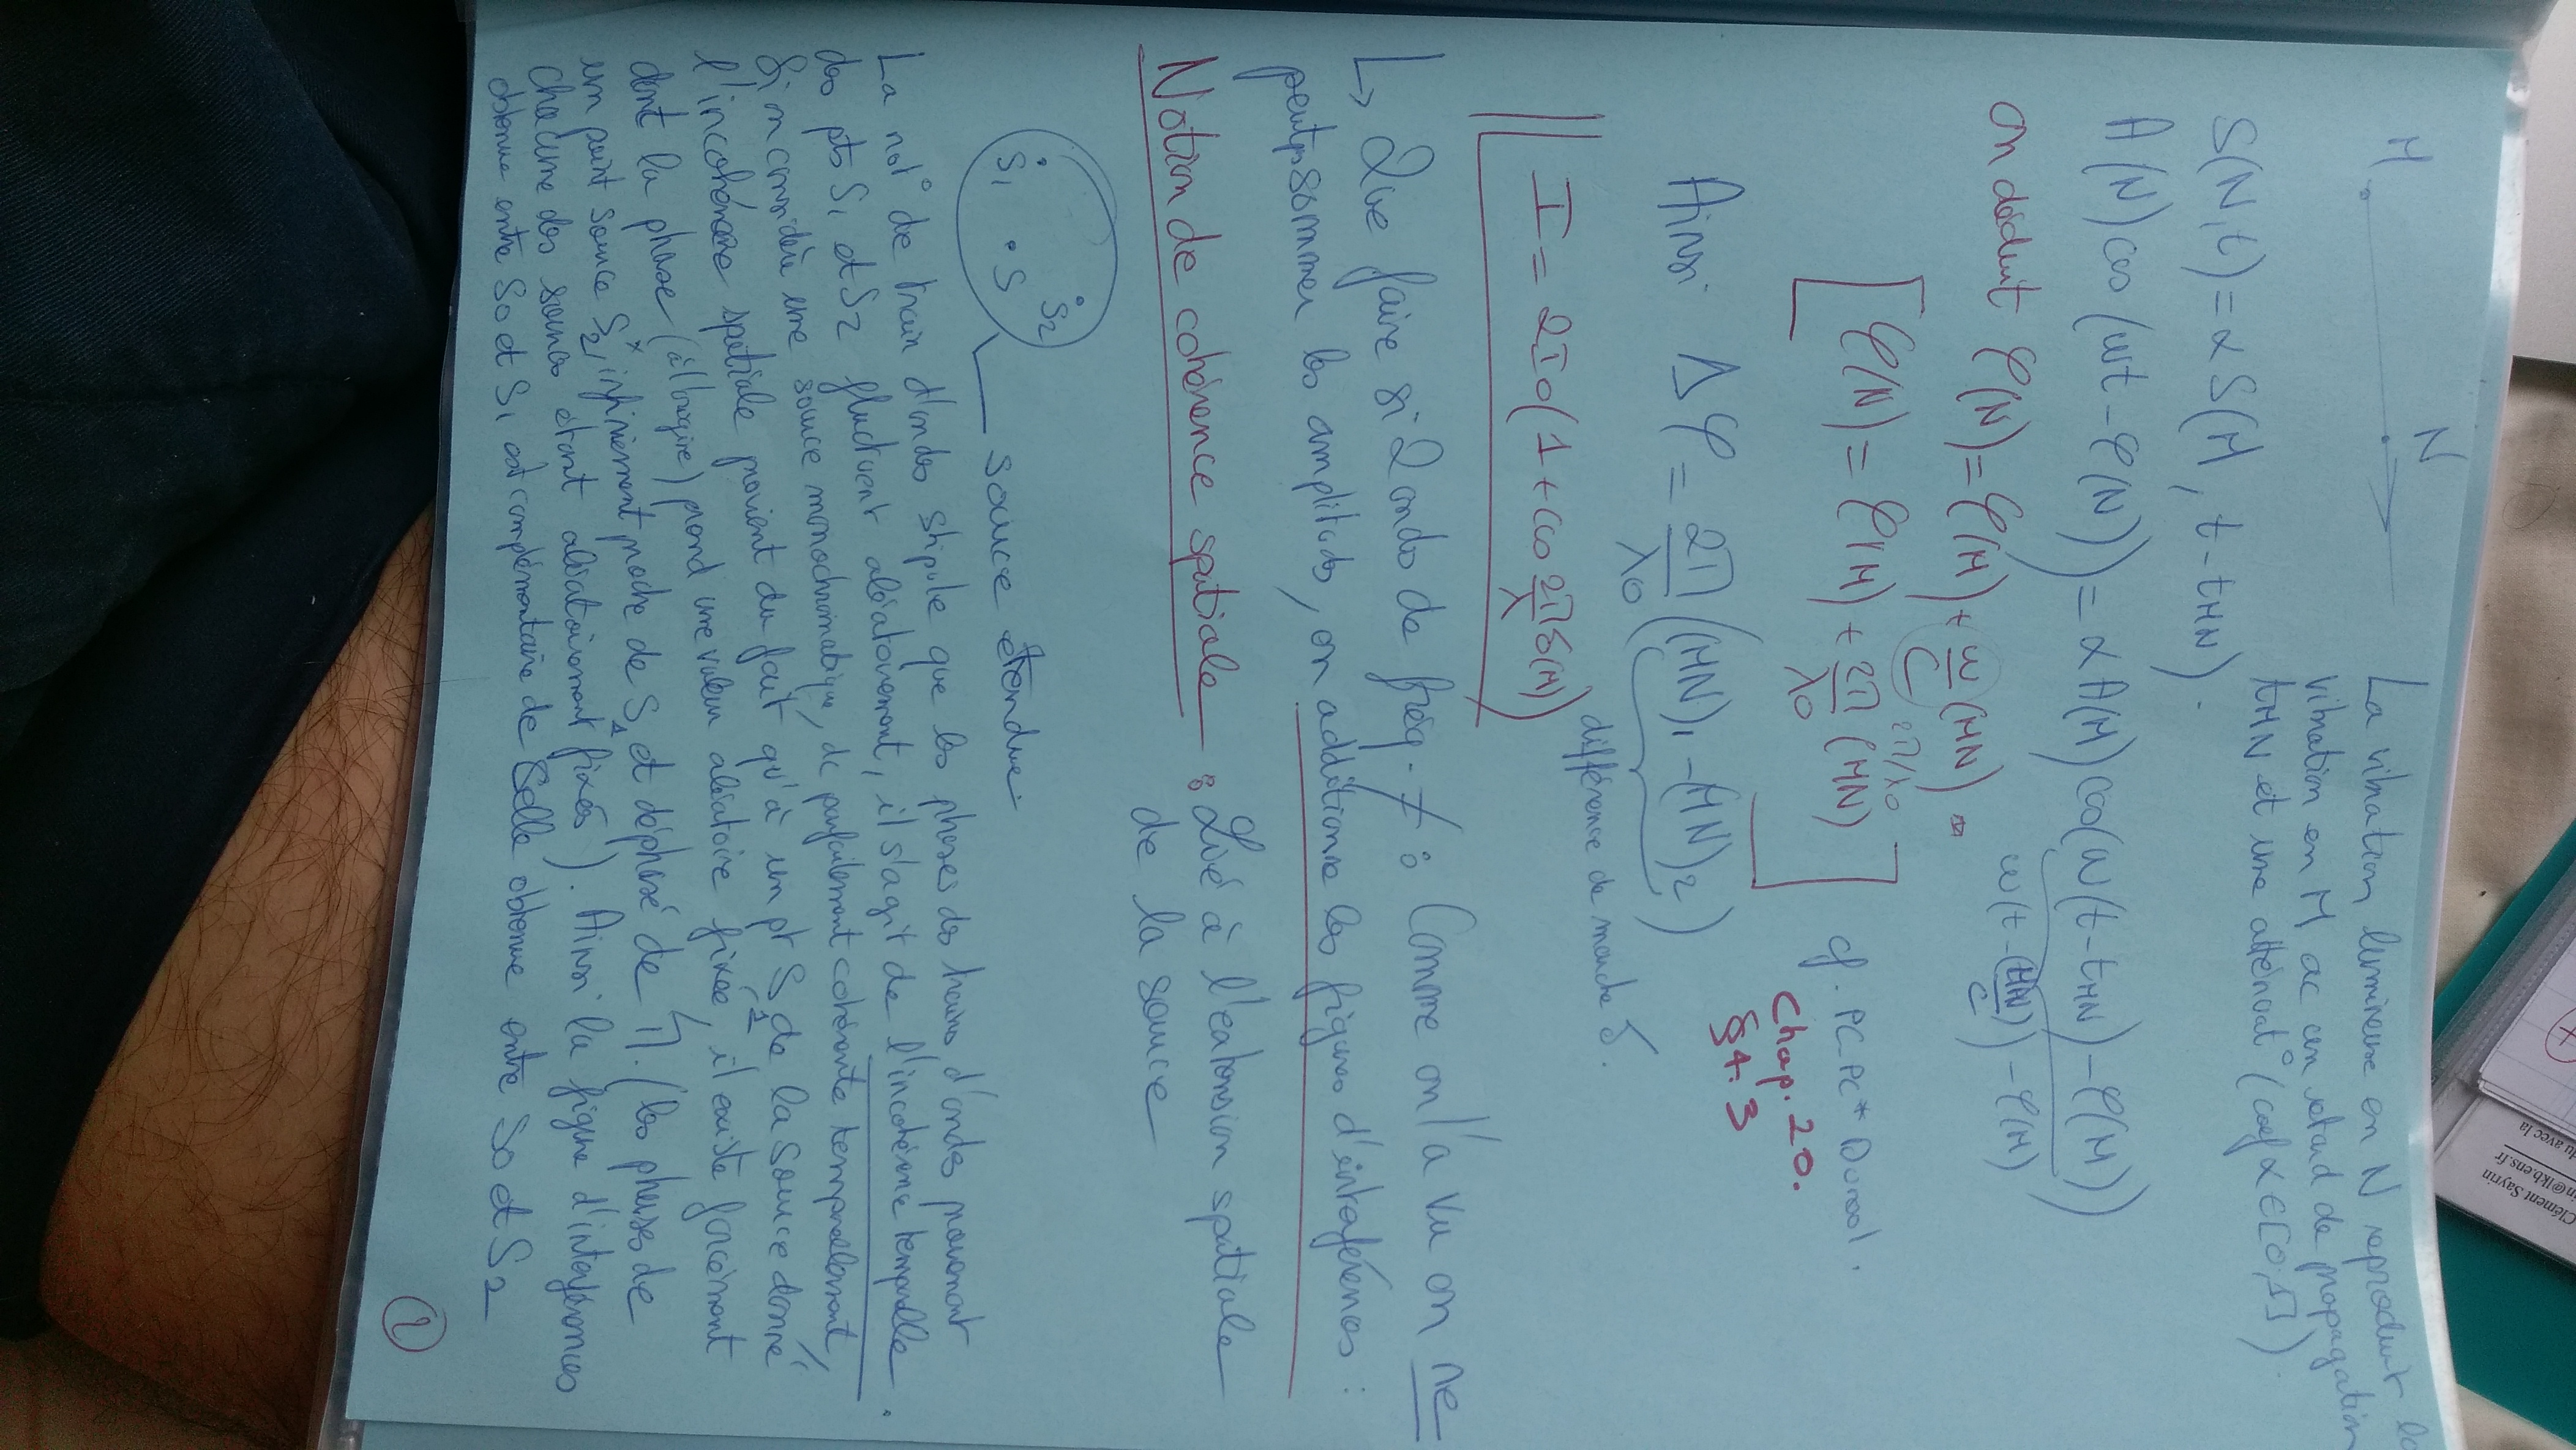 M N
La vibration lumineuse en N reproduit la
vibration en M ac un retard de propagation
tMN et une atténuat° (coef α ∈ [0,1]).
S(N,t) = α S(M, t - tMN).
A(N) cos(ωt - φ(N)) = α A(M) cos(ω(t - tMN) - φ(M))
ω(t - (MN)/c) - φ(M)
on déduit φ(N) = φ(M) + ω/c (MN)
2π/λ0
[φ(N) = φ(M) + 2π/λ0 (MN)]
cf. PC PC* Dunod.
Chap. 20.
§4.3
Ainsi Δφ = 2π/λ0 ((MN)1 - (MN)2)
différence de marche δ.
I = 2I0(1 + cos 2π/λ δ(M))
↳ Que faire si 2 ondes de fréq. ≠ : Comme on l'a vu on ne
peut pas sommer les amplitudes, on additionne les figures d'interférences :
Notion de cohérence spatiale : Lié à l'extension spatiale
de la source
S1 S S2
source étendue.
La not° de train d'ondes stipule que les phases des trains d'ondes provenant
des pts S1 et S2 fluctuent aléatoirement, il s'agit de l'incohérence temporelle.
Si on considère une source monochromatique, dc parfaitement cohérente temporellement,
l'incohérence spatiale provient du fait qu'à un pt S1 de la source donné
dont la phase (à l'origine) prend une valeur aléatoire fixée, il existe forcément
un point source S2, infiniment proche de S1 et déphasé de π. (les phases de
chacune des sources étant aléatoirement fixées). Ainsi la figure d'interférences
obtenue entre S0 et S1 est complémentaire de celle obtenue entre S0 et S2
2
Clément Sayrin
n@lkb.ens.fr
du avec la